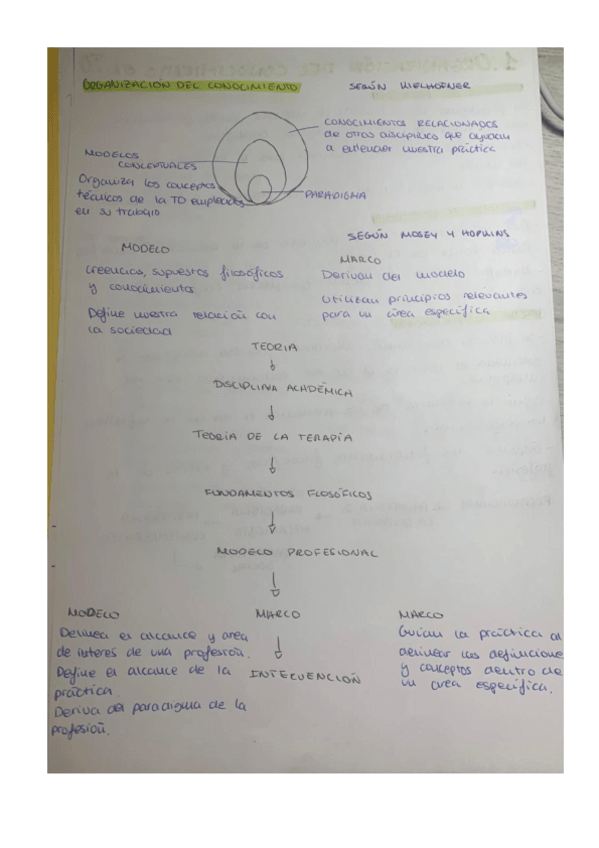 ORGANIZACIÓN DEL CONOCIMIENTO
SEGÚN KIELHOFNER
CONOCIMIENTOS RELACIONADOS
de otras disciplinas que ayudan
a entender nuestra práctica
MODELOS
CONCEPTUALES
Organiza los conceptos
técnicos de la TO empleados
en su trabajo
PARADIGMA
SEGÚN MOSEY Y HOPKINS
MODELO
Creencias, supuestos filosóficos
y conocimientos
Define nuestra relación con
la sociedad
MARCO
Derivan del modelo
Utilizan principios relevantes
para un área específica
TEORIA
↓
DISCIPLINA ACADÉMICA
↓
TEORIA DE LA TERAPÍA
↓
FUNDAMENTOS FLOSÓFICOS
↓
MODELO PROFESIONAL
↓
MODELO
Delinea el alcance y area
de interes de una profesión.
Define el alcance de la
práctica.
Deriva del paradigma de la
profesión.
MARCO
↓
INTECUENCIÓN
MARCO
Guían la práctica al
delinear las definiciones
y conceptos dentro de
un area específica.